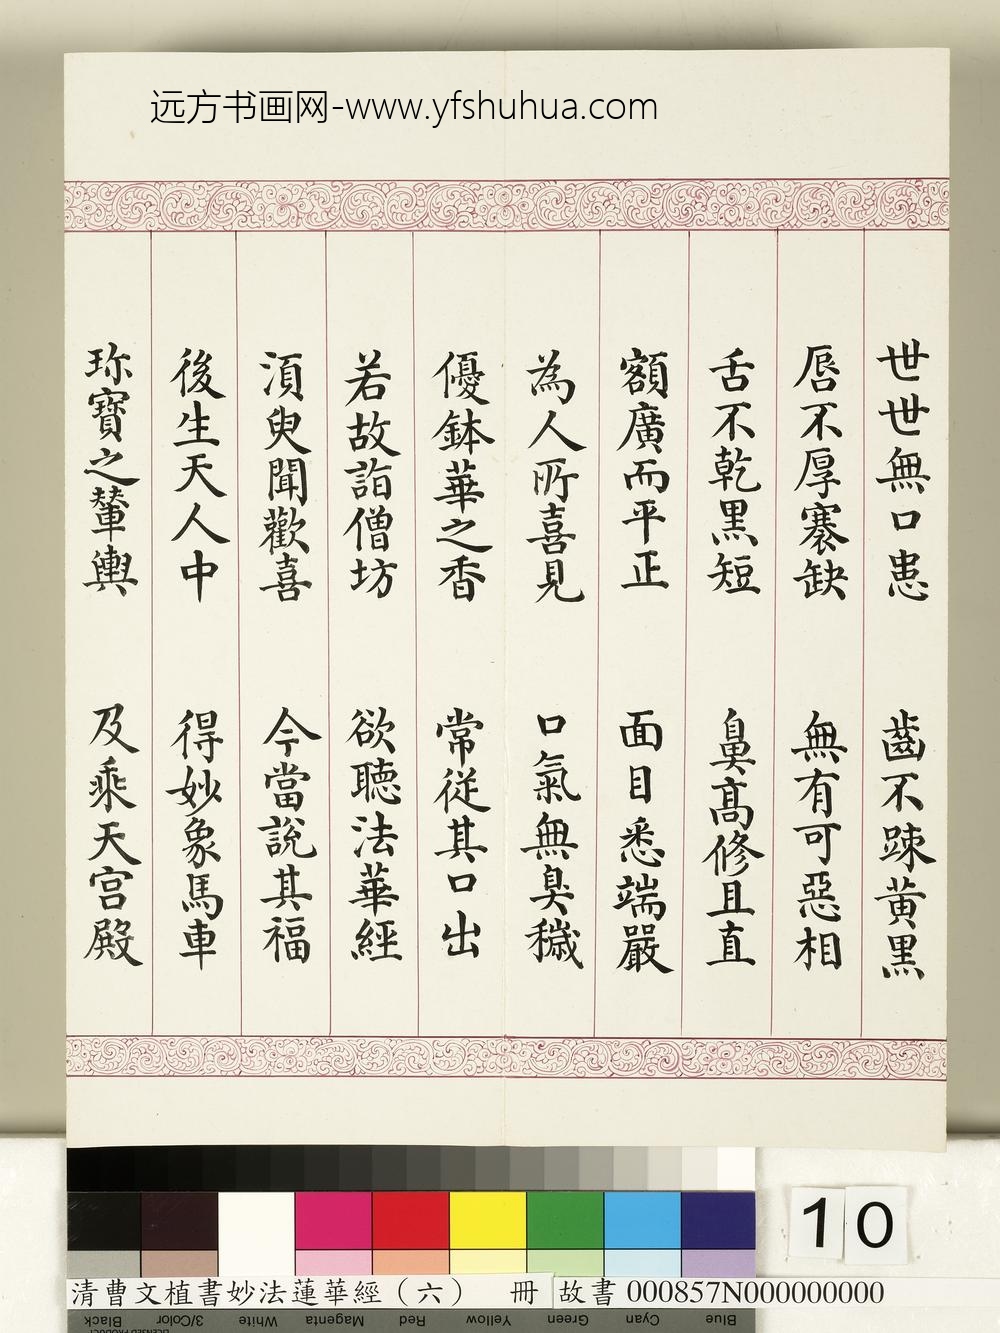 远方书画网-www.yfshuhua.com
世世無口患 齒不踈黃黑
唇不厚褰缺 無有可惡相
舌不乾黑短 鼻高修且直
額廣而平正 面目悉端嚴
為人所喜見 口氣無臭穢
優鉢華之香 常從其口出
若故詣僧坊 欲聽法華經
湏臾聞歡喜 今當說其福
後生天人中 得妙象馬車
珎寶之輦輿 及乘天宮殿
10
清曹文植書妙法蓮華經（六） 冊 故書 000857N000000000
Black 3/Color White Magenta Red Yellow Green Cyan Blue